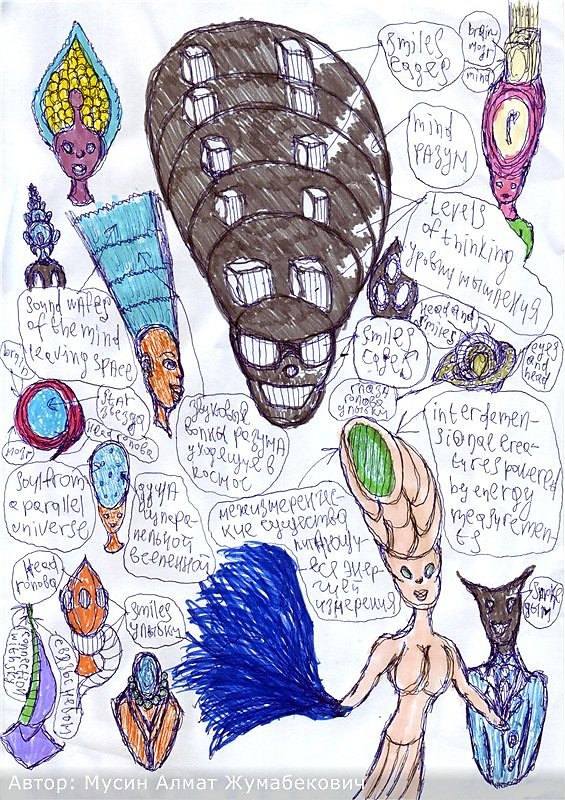 smiles
edges
brain
мозг
mind
mind
РАЗУМ
Levels
of thinking
уровни мышления
sound waves
of the mind
leaving space
head and
smiles
eyes
and
head
smiles
edges
глаза
голова
улыбки
brain
мозг
star
звезда
Head голова
звуковая
волны разума
уходящие в
космос
interdemen-
sional crea-
tures powered
by energy
measuremen-
ts
soul from
a parallel
universe
душа
из пара-
лельной
вселенной
межизмеренчес-
кие существа
питающи-
еся энер-
гией
измерения
Head
голова
smiles
улыбки
connection
with sky
связь с небом
smoke
дым
Автор: Мусин Алмат Жумабекович